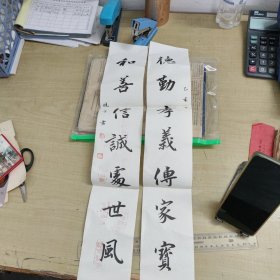 德勤孝義傳家寶
和善信誠處世風